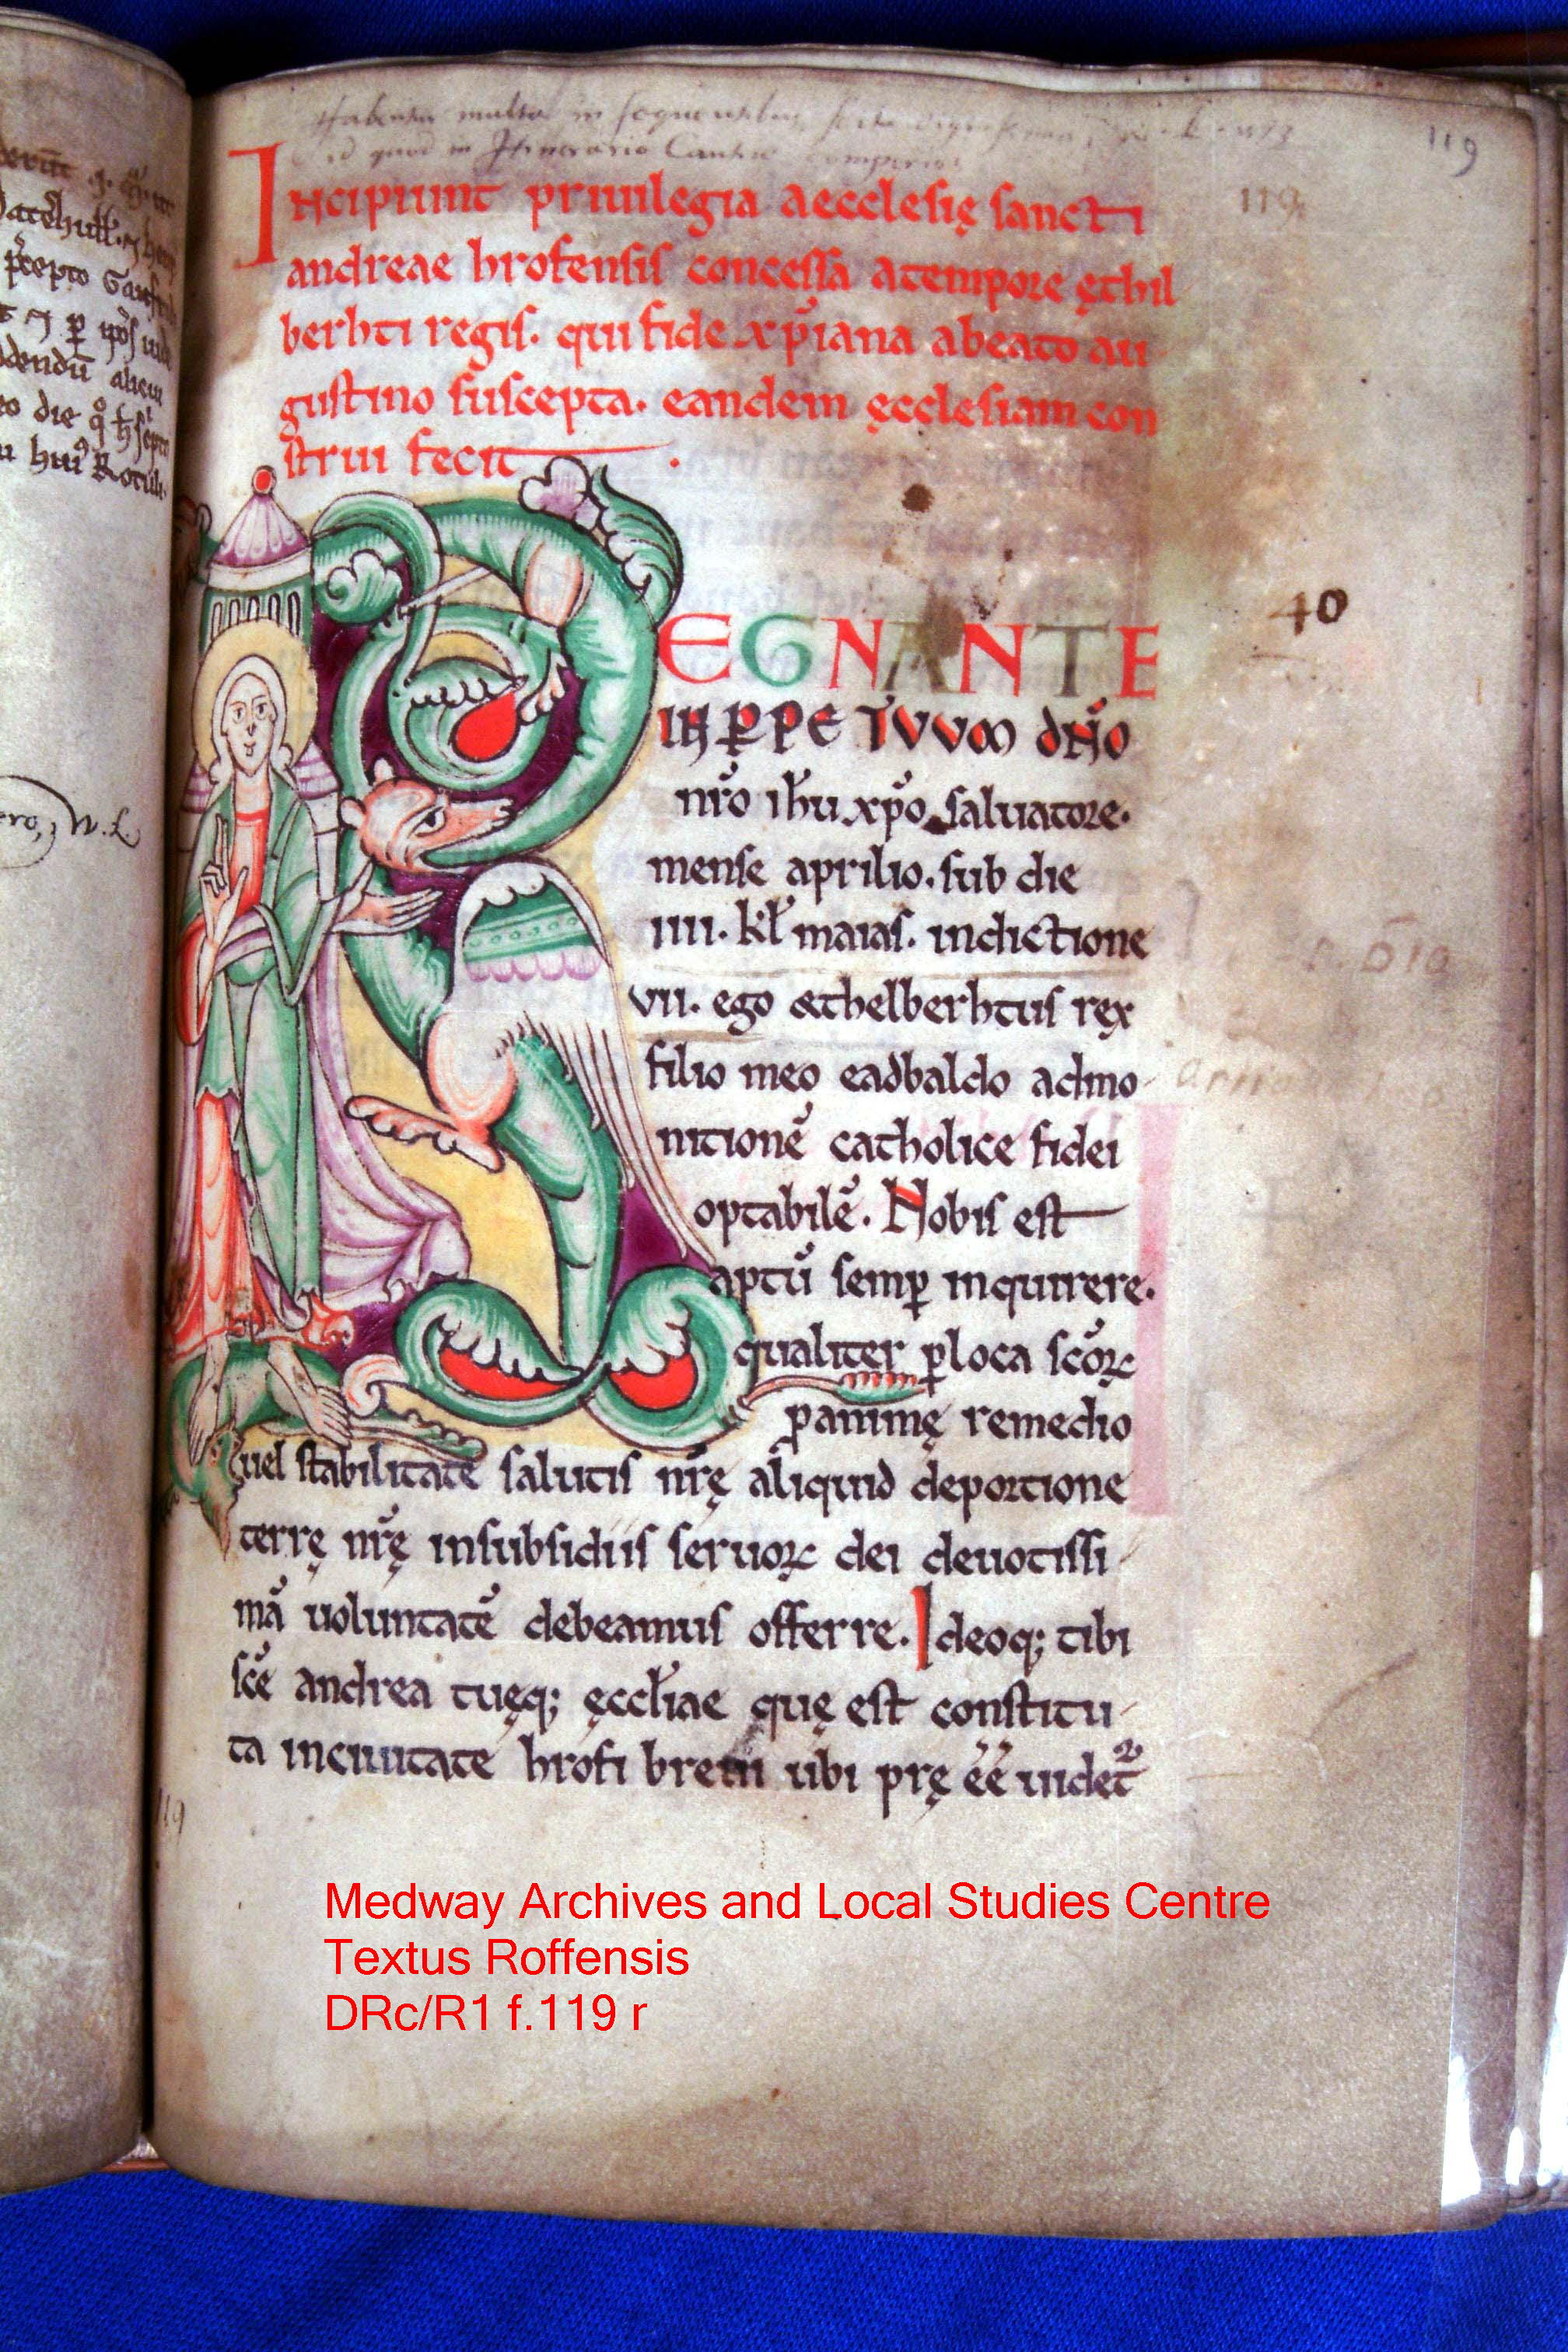 Incipiunt priuilegia aecclesię sancti
andreae hrofensis concessa atempore ęthil
berhti regis. qui fide xp̄iana abeato au
gustino suscepta. eandem ęcclesiam con
strui fecit.
119
119
REGNANTE
IN ꝑPETVVM dN̄o
nr̄o ih̄u xp̄o saluatore.
mense aprilio. sub die
40
iiii. kl̄ maias. indictione
vii. ego æthelberhtus rex
filio meo eadbaldo admo
nitionē catholice fidei
optabilē. Nobis est
aptū semꝑ inquirere.
qualiter ꝑ loca scōꝝ
ꝑ animę remedio
uel stabilitate salutis nr̄ę aliquid deportione
terrę nr̄ę insubsidiis seruoꝝ dei deuotissi
mā uoluntatē debeamus offerre. Ideoq; tibi
sc̄e andrea tuęq; ęccl̄iae quę est constitu
ta inciuitate hrofi breui ubi pręēē uidet᷑
119
W. L.
Medway Archives and Local Studies Centre
Textus Roffensis
DRc/R1 f.119 r